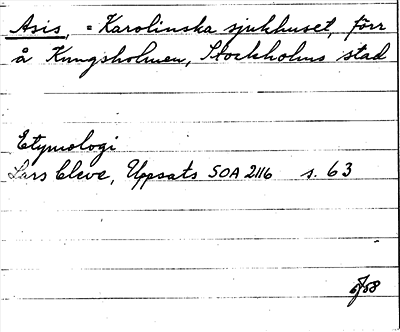 Asis, = Karolinska sjukhuset, förr
å Kungsholmen, Stockholms stad
Etymologi
Lars Cleve, Uppsats SOA 2116 s. 63